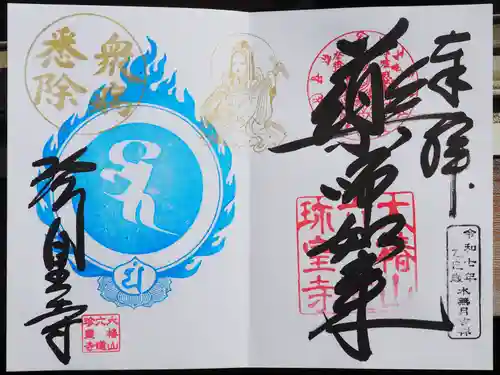 奉拝
薬師如来
大椿山
珎皇寺
令和七年
乙巳歳 水無月吉祥
衆病
悉除
珎皇寺
大椿山
六道
珍皇寺